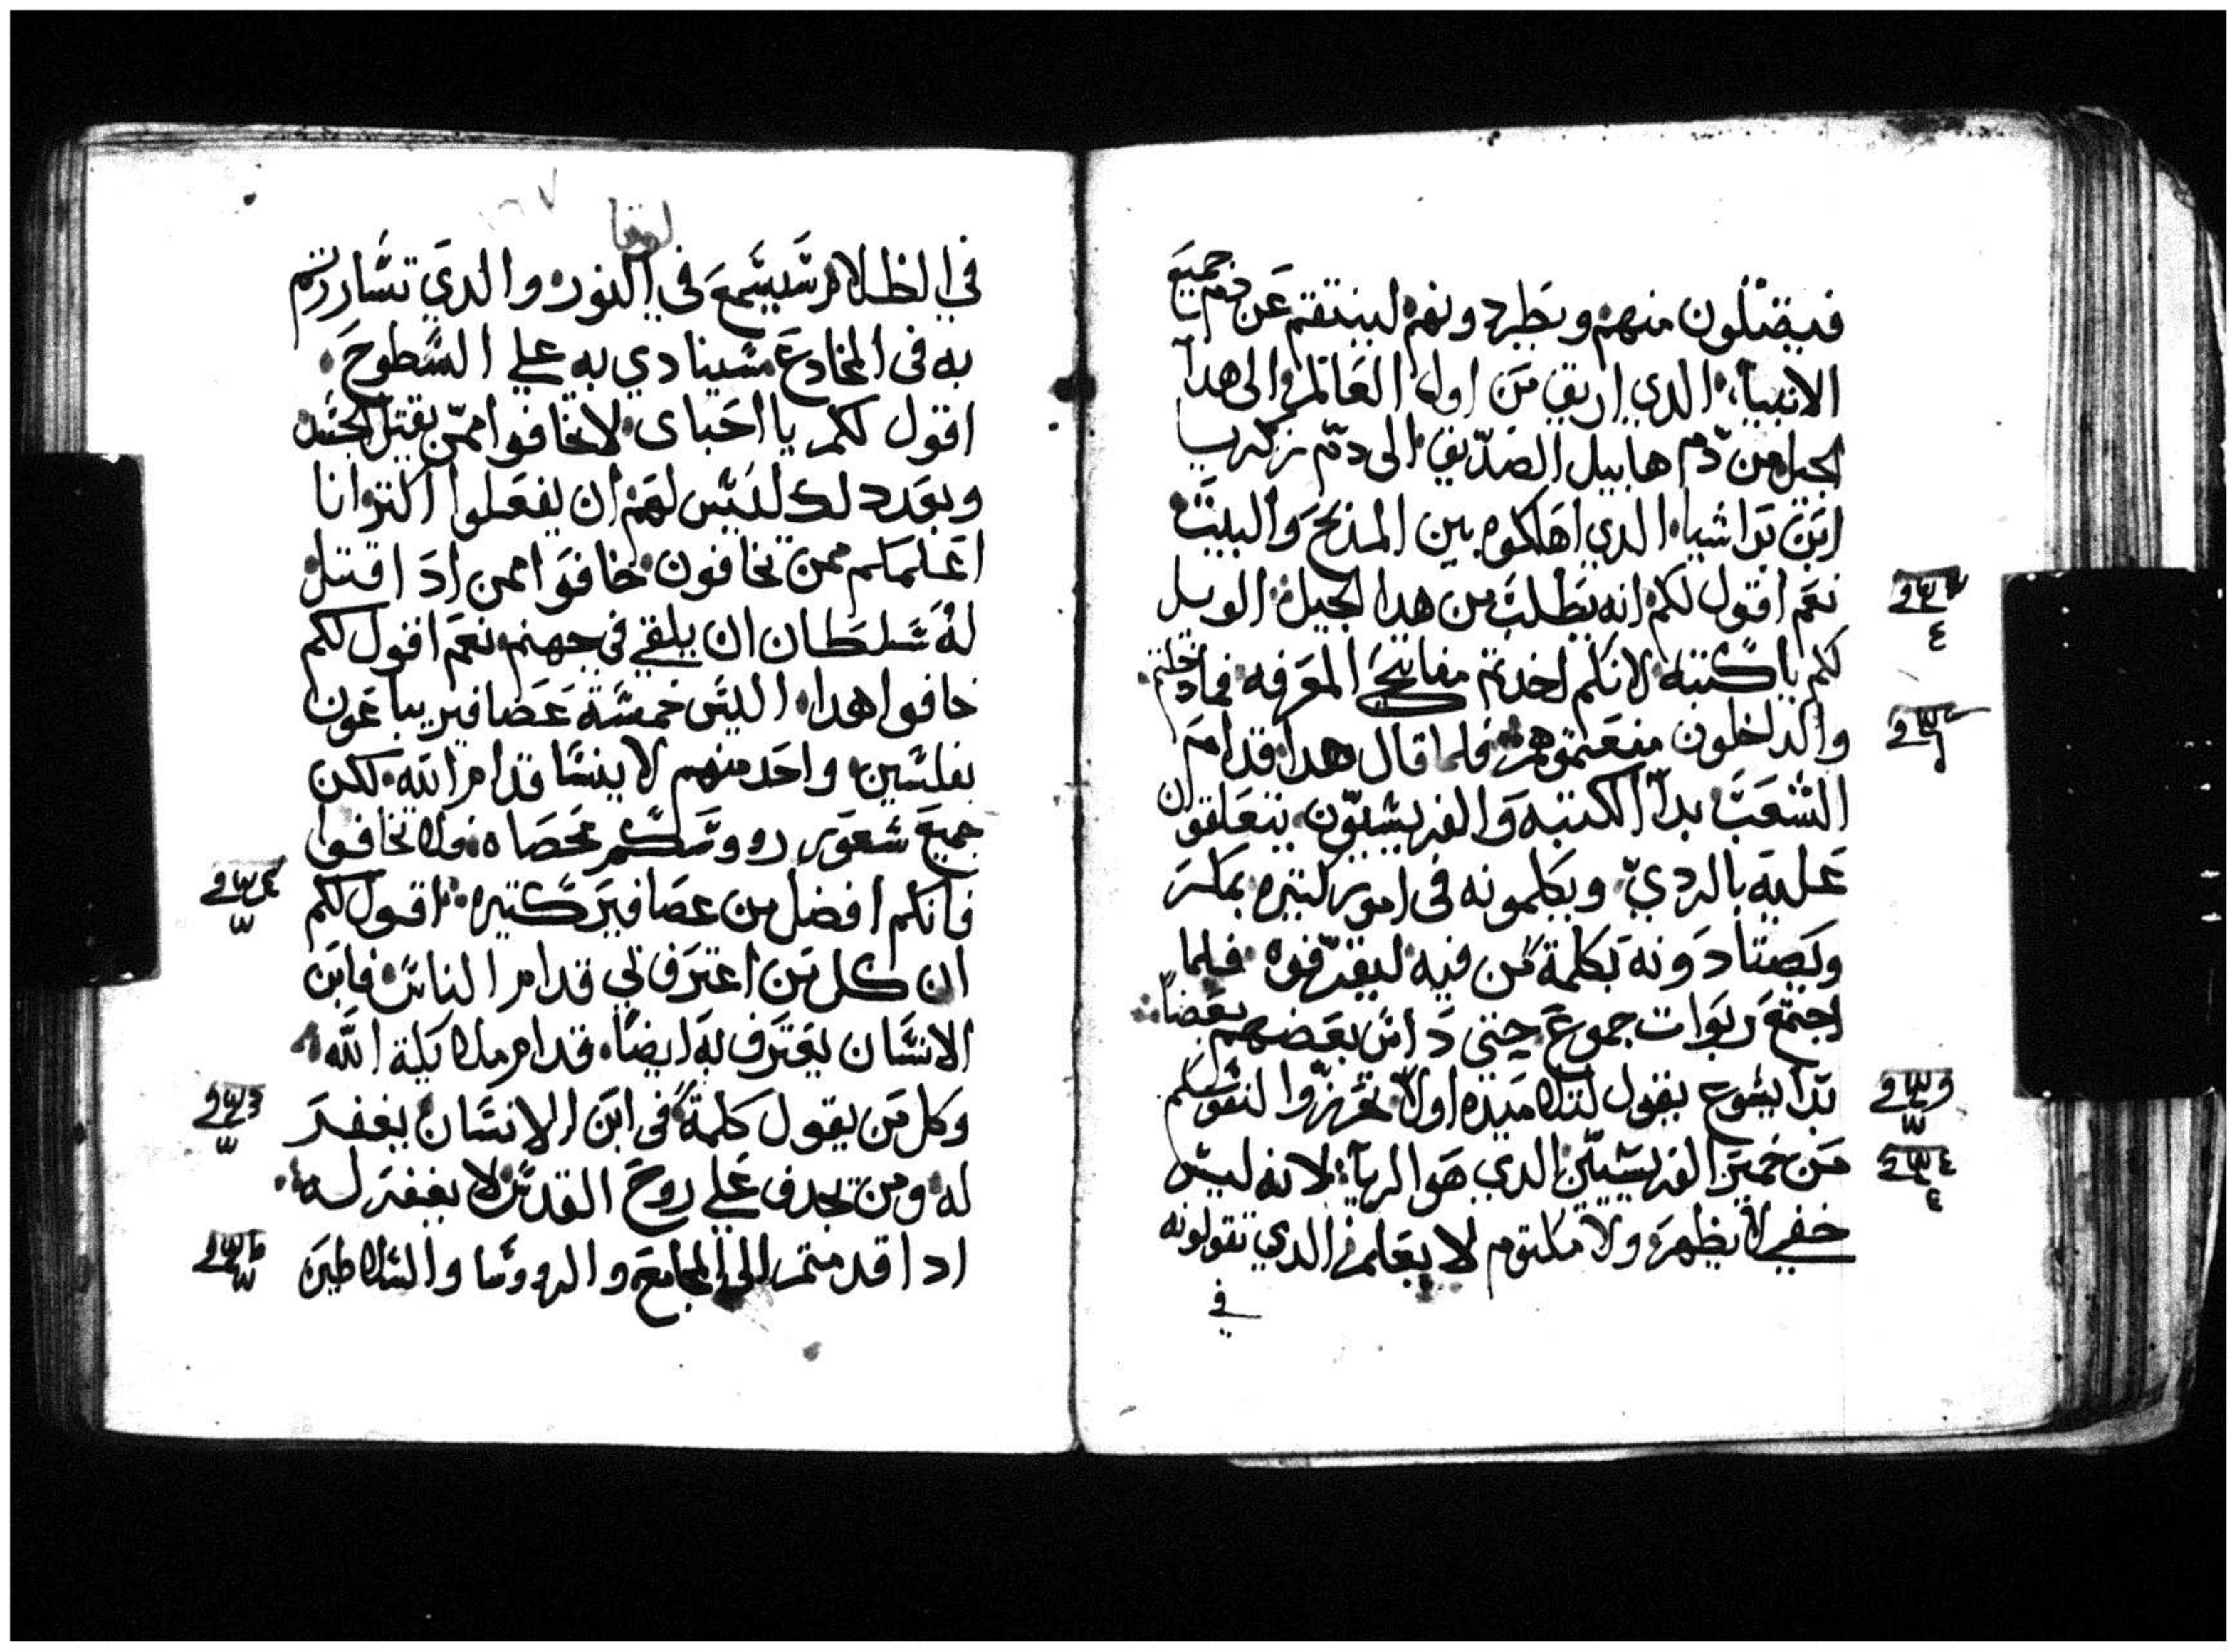 فيقتلون منهم ويطردونهم لينتقم عن دم جميع
الانبيا الدي اريق من اول العالم والى هدا
الجيل من دم هابيل الصديق الى دم زكريا
ابن براشيا الدي اهلكوه بين المدبح والبيت
نعم اقول لكم انه يطلب من هدا الجيل الويل
لكم يا كتبة لانكم اخدتم مفاتيح المعرفه فما دخلتم
والداخلون منعتموهم فلما قال هدا قدام
الشعب بدا الكتبة والفريسيون يتعلقون
عليه بالردي ويكلمونه في امور كتيره بمكر
ويصتادونه بكلمة من فيه ليقرفوه فلما
اجتمع ربوات جموع حتى داس بعضهم بعضا
بدا يسوع يقول لتلاميده اولا تحرزوا لنفوسكم
من خمير الفريسيين الدي هو الريا لانه ليس
خفي لا يظهر ولا مكتوم لا يعلم الدي تقولونه
في
لوقا
في الظلام سيسمع في النور والدي تساررتم
به في المخادع سينادي به علي السطوح
اقول لكم يا احباي لا تخافوا ممن يقتل الجسد
وبعد دلك ليس لهم ان يفعلوا اكتر وانا
اعلمكم ممن تخافون خافوا ممن ادا قتل
له سلطان ان يلقي في جهنم نعم اقول لكم
خافوا هدا اليس خمسة عصافير يباعون
بفلسين وواحد منهم لا ينسا قدام الله لكن
جميع شعور رووسكم محصاه فلا تخافوا
فانكم افضل من عصافير كتيره اقول لكم
ان كل من اعترف بي قدام الناس فابن
الانسان يعترف به ايضا قدام ملايكة الله
وكل من يقول كلمة في ابن الانسان يغفر
له ومن يجدف علي روح القدس لا يغفر له
ادا قدمتم الى المجامع والرووسا والسلاطين